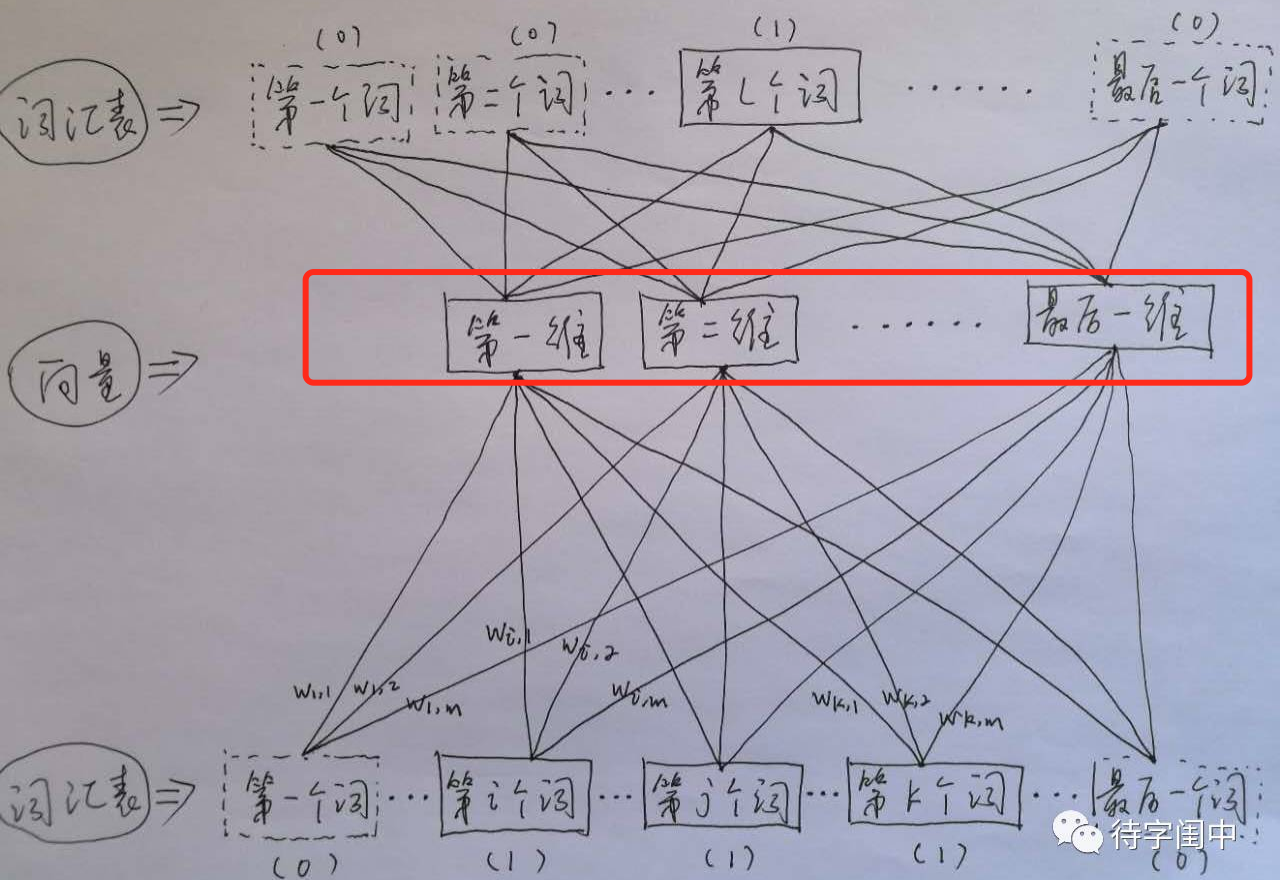 (0) (0) (1) (0)
词汇表 ⇒ 第一个词 第二个词 ··· 第l个词 ······ 最后一个词
向量 ⇒ 第一维 第二维 ······ 最后一维
Wi,1 Wi,2 Wi,m
W1,1 W1,2 W1,m Wk,1 Wk,2 Wk,m
词汇表 ⇒ 第一个词 ··· 第i个词 ··· 第j个词 ··· 第k个词 ··· 最后一个词
待字闺中
(0) (1) (1) (1) (0)